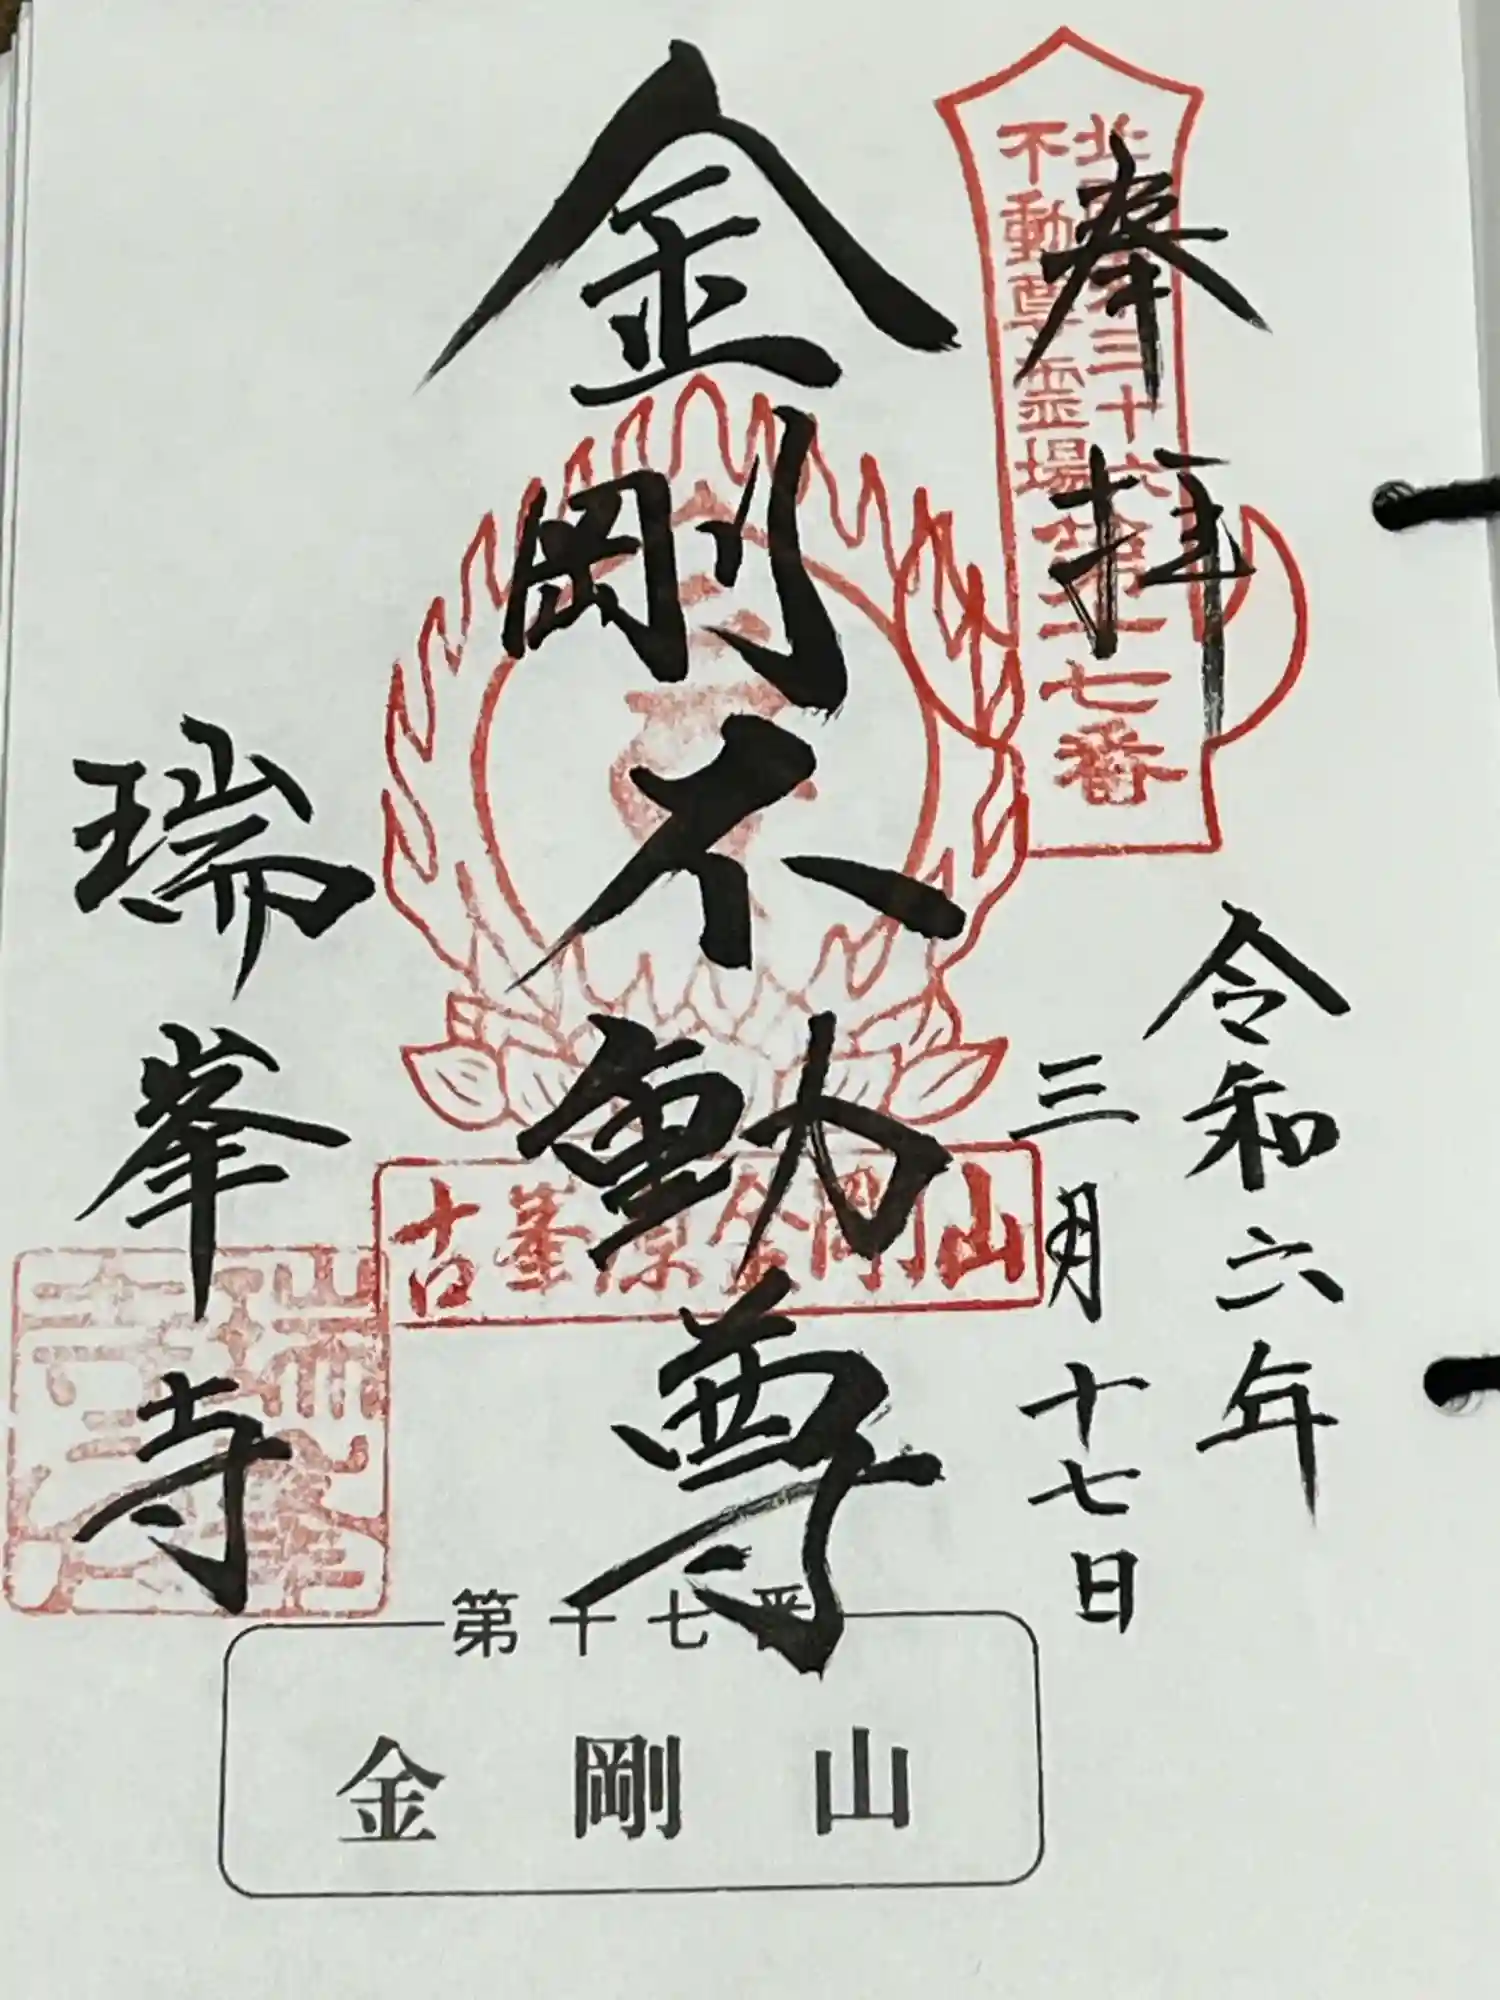 奉拝
北関東三十六
不動尊霊場
第十七番
令和六年
三月十七日
金剛不動尊
古峯原金剛山
瑞峯寺
第十七番
金剛山